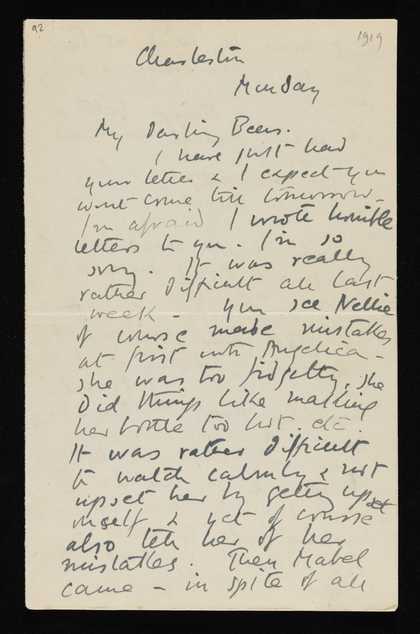 92
1919
Charleston
Monday
My Darling Bear.
I have just had
your letter & I expect you
wont come till tomorrow.
I'm afraid I wrote horrible
letters to you. I'm so
sorry. It was really
rather difficult all last
week - You see Nellie
of course made mistakes
at first with Angelica -
she was too fidgetty, she
did things like making
her bottle too hot. etc.
It was rather difficult
to watch calmly & not
upset her by getting upset
myself & yet of course
also tell her of her
mistakes. Then Mabel
came - in spite of all